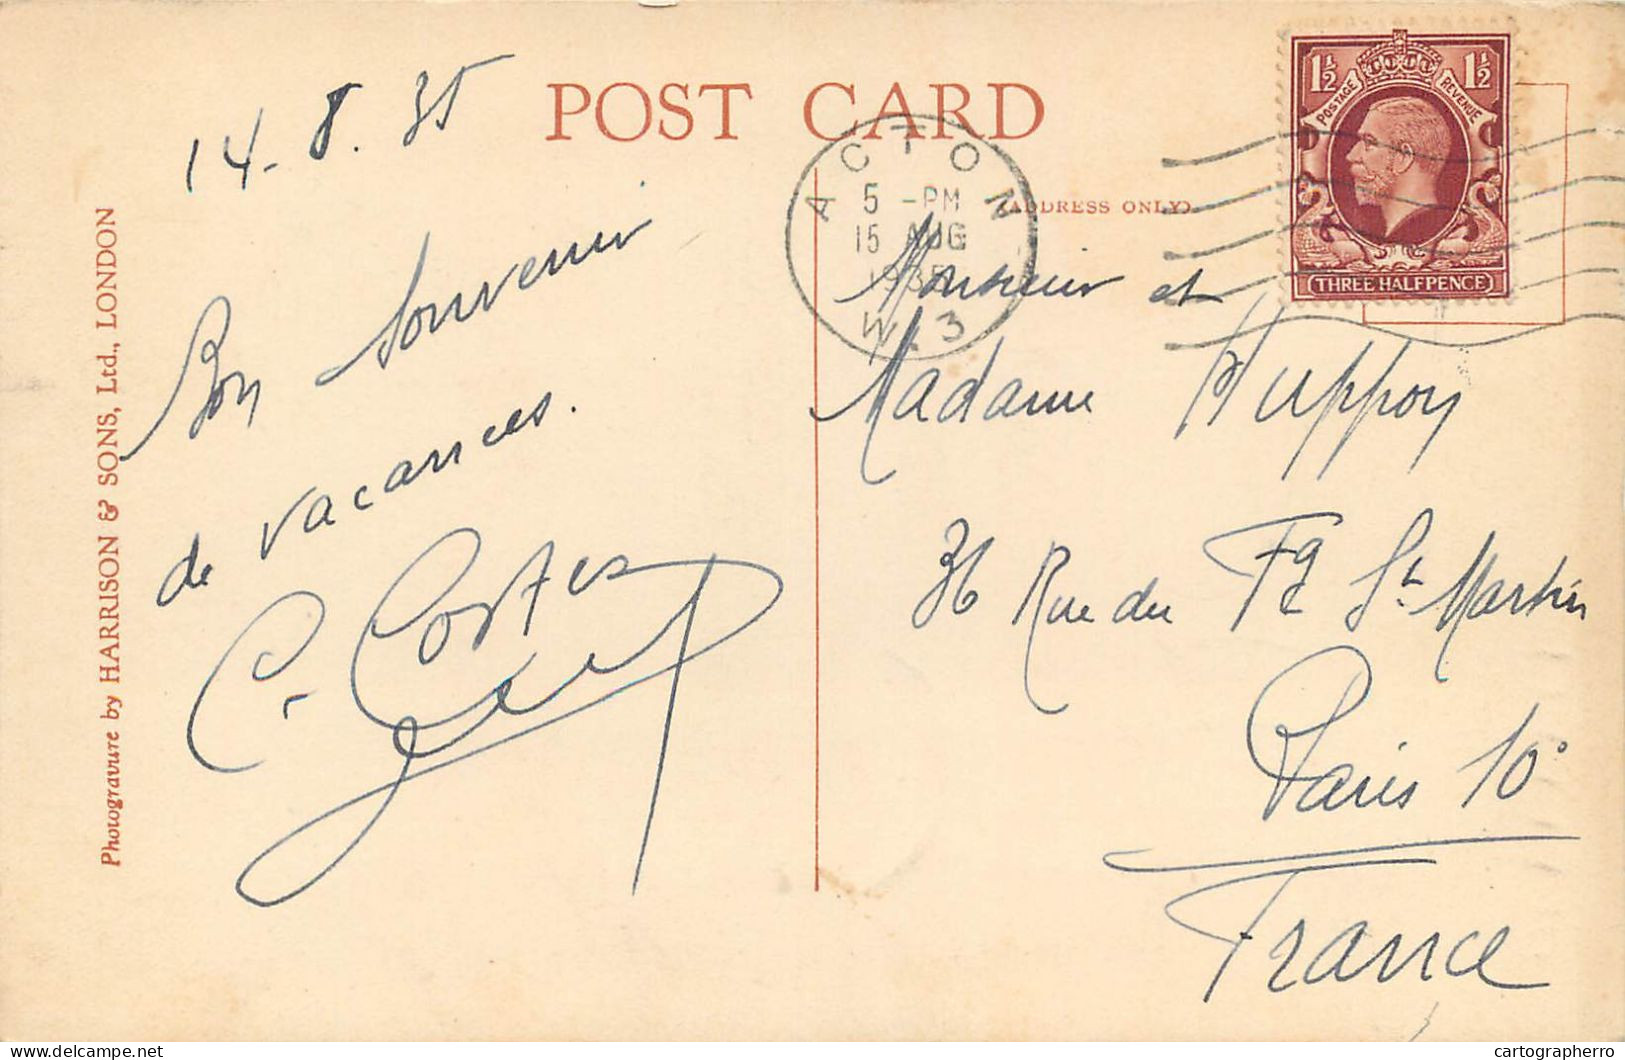 POST CARD
(ADDRESS ONLY)
14-8.35
Bon souvenir
de vacances.
C. Costes
Photogravure by HARRISON & SONS, Ltd., LONDON
ACTON
5 -PM
15 AUG
1935
W.3
1½ 1½
POSTAGE REVENUE
THREE HALFPENCE
Monsieur et
Madame Huppoy
36 Rue du Fg St Martin
Paris 10°
France
cartographerro